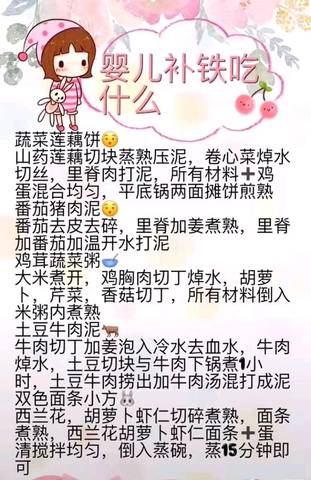 婴儿补铁吃
什么
蔬菜莲藕饼😚
山药莲藕切块蒸熟压泥，卷心菜焯水
切丝，里脊肉打泥，所有材料➕鸡
蛋混合均匀，平底锅两面摊饼煎熟
番茄猪肉泥😚
番茄去皮去碎，里脊加姜煮熟，里脊
加番茄加温开水打泥
鸡茸蔬菜粥🥣
大米煮开，鸡胸肉切丁焯水，胡萝
卜，芹菜，香菇切丁，所有材料倒入
米粥内煮熟
土豆牛肉泥🐂
牛肉切丁加姜泡入冷水去血水，牛肉
焯水，土豆切块与牛肉下锅煮1小
时，土豆牛肉捞出加牛肉汤混打成泥
双色面条小方🐰
西兰花，胡萝卜虾仁切碎煮熟，面条
煮熟，西兰花胡萝卜虾仁面条➕蛋
清搅拌均匀，倒入蒸碗，蒸15分钟即
可